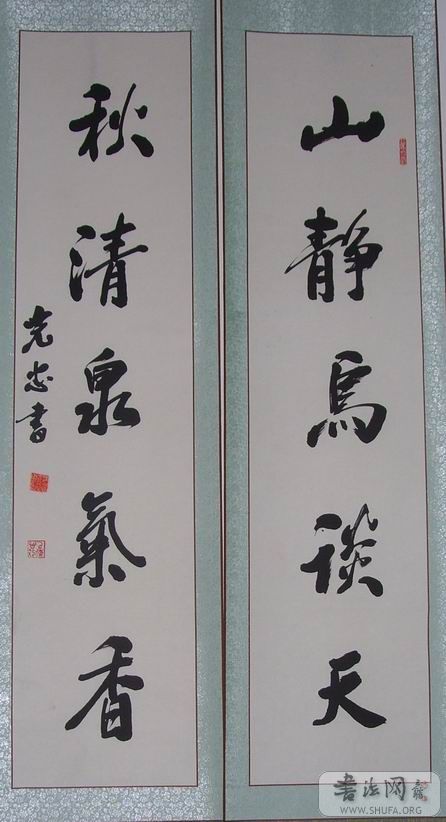 山靜鳥談天
秋清泉氣香
書
書法网
WWW.SHUFA.ORG